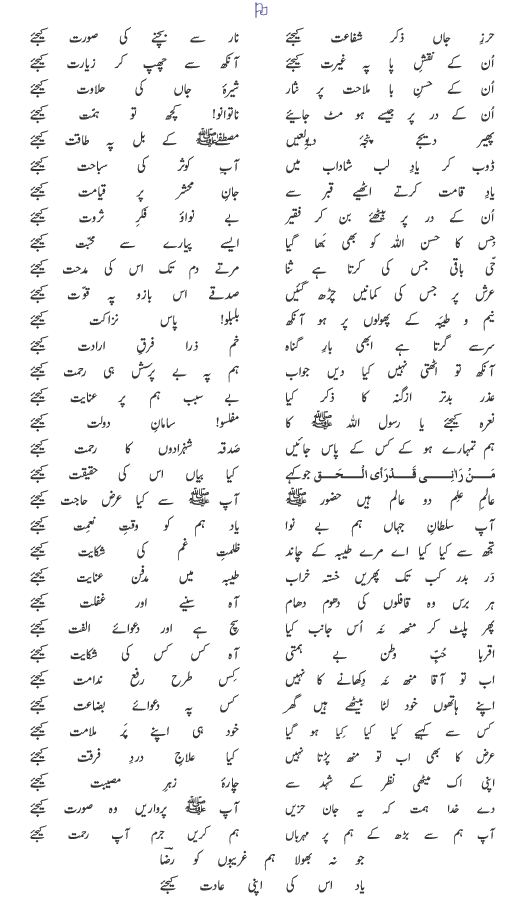 حرزِ جاں ذکر شفاعت کیجئے نار سے بچنے کی صورت کیجئے
اُن کے نقشِ پا پہ غیرت کیجئے آنکھ سے چھپ کر زیارت کیجئے
اُن کے حسنِ با ملاحت پر نثار شیرۂ جاں کی حلاوت کیجئے
اُن کے در پر جیسے ہو مٹ جایئے ناتوانو! کچھ تو ہمّت کیجئے
پھیر دیجے پنجۂ دیولعیں مصطفٰیﷺ کے بل پہ طاقت کیجئے
ڈوب کر یادِ لب شاداب میں آبِ کوثر کی سباحت کیجئے
یادِ قامت کرتے اٹھیے قبر سے جانِ محشر پر قیامت کیجئے
اُن کے در پر بیٹھئے بن کر فقیر بے نواؤ فکرِ ثروت کیجئے
جِس کا حسن اللہ کو بھی بَھا گیا ایسے پیارے سے محبّت کیجئے
حَّی باقی جس کی کرتا ہے ثنا مرتے دم تک اس کی مدحت کیجئے
عرش پر جس کی کمانیں چڑھ گئیں صدقے اس بازو پہ قوّت کیجئے
نیم و طیبہ کے پھولوں پر ہو آنکھ بلبلو! پاسِ نزاکت کیجئے
سرسے گرتا ہے ابھی بارِ گناہ خم ذرا فرقِ ارادت کیجئے
آنکھ تو اٹھتی نہیں کیا دیں جواب ہم پہ بے پرسش ہی رحمت کیجئے
عذر بدتر ازگنہ کا ذکر کیا بے سبب ہم پر عنایت کیجئے
نعرہ کیجئے یا رسول اللہ ﷺ کا مفلسو! سامانِ دولت کیجئے
ہم تمہارے ہو کے کس کے پاس جائیں صَدقہ شہزادوں کا رحمت کیجئے
مَنْ رَانِی قَدْرَأی الْحَق جوکہے کیا بیاں اس کی حقیقت کیجئے
عالمِ علمِ دو عالم ہیں حضور ﷺ آپ ﷺ سے کیا عرض حاجت کیجئے
آپ سلطانِ جہاں ہم بے نوا یاد ہم کو وقتِ نعمت کیجئے
تجھ سے کیا کیا اے مرے طیبہ کے چاند ظلمتِ غم کی شکایت کیجئے
دَر بدر کب تک پھریں خستہ خراب طیبہ میں مدفن عنایت کیجئے
ہر برس وہ قافلوں کی دھوم دھام آہ سنیے اور غفلت کیجئے
پھر پلٹ کر منھ نہ اُس جانب کیا سچ ہے اور دعوائے الفت کیجئے
اقربا حُبِّ وطن بے ہمتی آہ کس کس کی شکایت کیجئے
اب تو آقا منھ نہ دِکھانے کا نہیں کِس طرح رفعِ ندامت کیجئے
اپنے ہاتھوں خود لٹا بیٹھے ہیں گھر کس پہ دعوائے بضاعت کیجئے
کس سے کہیے کیا کیا کِیا ہو گیا خود ہی اپنے پَر ملامت کیجئے
عرض کا بھی اب تو منھ پڑتا نہیں کیا علاجِ دردِ فرقت کیجئے
اپنی اک میٹھی نظر کے شہد سے چارۂ زہرِ مصیبت کیجئے
دے خدا ہمت کہ یہ جان حزیں آپ ﷺ پرواریں وہ صورت کیجئے
آپ ہم سے بڑھ کے ہم پر مہرباں ہم کریں جرم آپ رحمت کیجئے
جو نہ بھولا ہم غریبوں کو رضاؔ
یاد اس کی اپنی عادت کیجئے